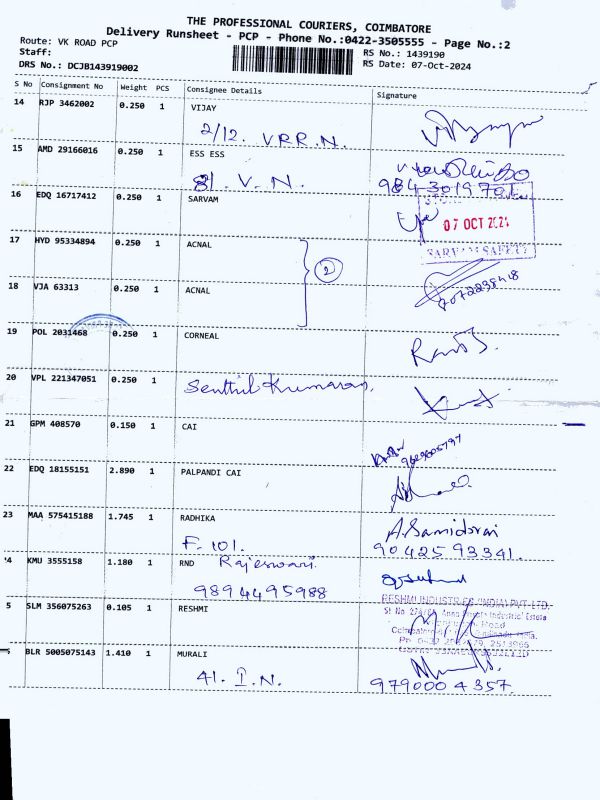 THE PROFESSIONAL COURIERS, COIMBATORE
Delivery Runsheet - PCP - Phone No.:0422-3505555 - Page No.:2
Route: VK ROAD PCP
RS No.: 1439190
Staff:
RS Date: 07-Oct-2024
DRS No.: DCJB143919002
S No Consignment No Weight PCS Consignee Details Signature
14 RJP 3462002 0.250 1 VIJAY
2/12. V.R.R.N.
15 AMD 29166016 0.250 1 ESS ESS
81. V.N.
16 EDQ 16717412 0.250 1 SARVAM
07 OCT 2024
SARVAM SAFETY
17 HYD 95334894 0.250 1 ACNAL
2
18 VJA 63313 0.250 1 ACNAL
19 POL 2031468 0.250 1 CORNEAL
20 VPL 221347051 0.250 1 Senthil Kumaran.
21 GPM 408570 0.150 1 CAI
22 EDQ 18155151 2.890 1 PALPANDI CAI
23 MAA 575415188 1.745 1 RADHIKA
F. 101.
A. Samidorai
90425 93341.
'4 KMU 3555158 1.180 1 RND Rajeswari.
9894495988
5 SLM 356075263 0.105 1 RESHMI
RESHMI INDUSTRIES (INDIA) PVT. LTD.
BLR 5005075143 1.410 1 MURALI
41. I.N.
979000 4357.